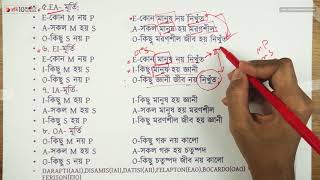 ৫.EA- মূর্তি:
E-কোন M নয় P E-কোন মানুষ নয় নিখুঁত
A-সকল M হয় S A-সকল মানুষ হয় মরণশীল
O-কিছু S নয় P O-কিছু মরণশীল জীব নয় নিখুঁত
৬. EI-মূর্তি:
E-কোন M নয় P E-কোন মানুষ নয় নিখুঁত
I-কিছু M হয় S I-কিছু মানুষ হয় জ্ঞানী
O-কিছু S নয় P O-কিছু জ্ঞানী জীব নয় নিখুঁত
৭. IA-মূর্তি:
I-কিছু M হয় P I-কিছু মানুষ হয়
A-সকল M হয় S A-সকল মানুষ হয় মরণশীল
I-কিছু S হয় P I-কিছু মরণশীল জীব হয়
৮. OA- মূর্তি:
O-কিছু M নয় P O-কিছু গরু নয় কালো
A-সকল M হয় S A-সকল গরু হয় চতুষ্পদ
O-কিছু S নয় P O-কিছু চতুষ্পদ জীব নয় কালো
DARAPTI(AAI),DISAMIS(IAI),DATISI(AII),FELAPTON(EAO),BOCARDO(OAO)
FERISON(EIO)